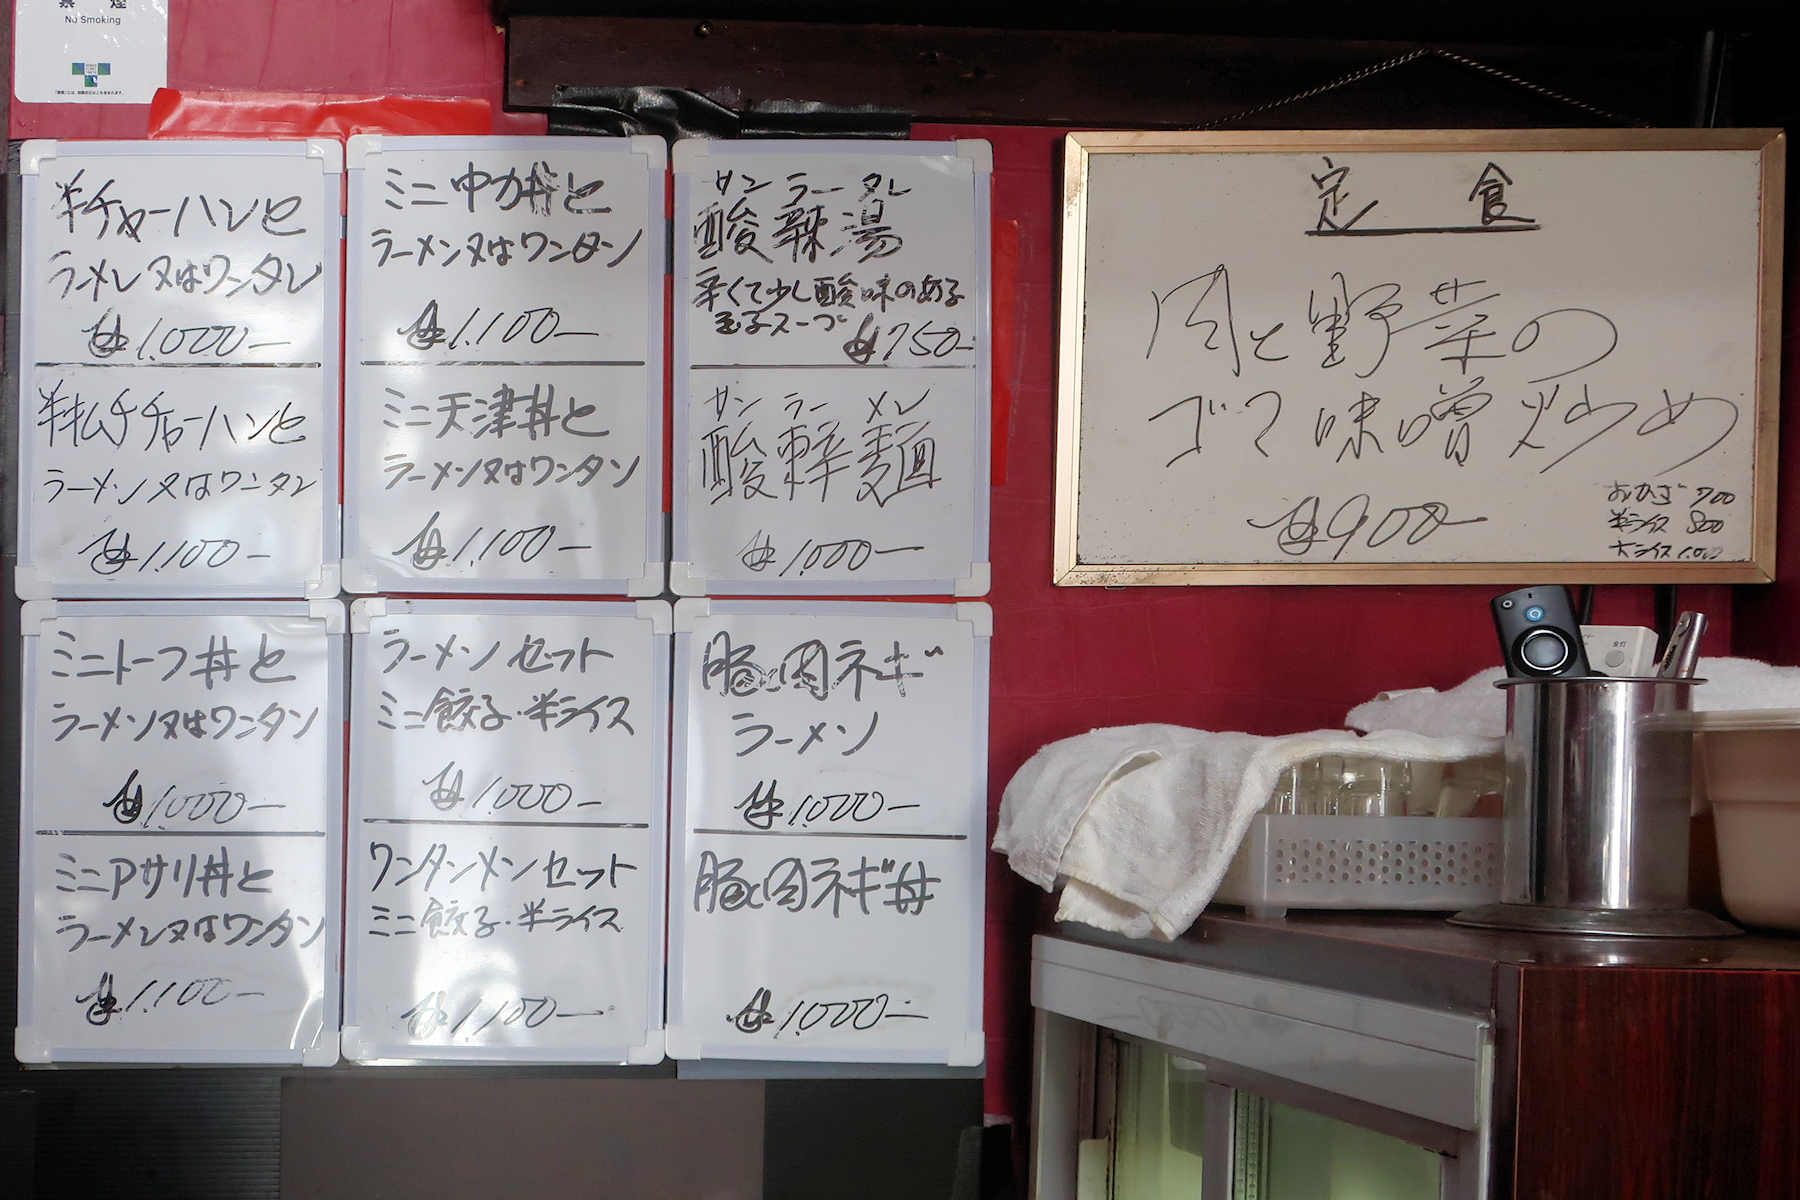 禁煙
No Smoking
半チャーハンと
ラーメン又はワンタン
¥1.000-
半キムチチャーハンと
ラーメン又はワンタン
¥1.100-
ミニ中力丼と
ラーメン又はワンタン
¥1.100-
ミニ天津丼と
ラーメン又はワンタン
¥1.100-
サンラータン
酸辣湯
辛くて少し酸味のある
玉子スープ
¥750-
サンラーメン
酸辣麺
¥1.000-
ミニトーフ丼と
ラーメン又はワンタン
¥1.000-
ミニアサリ丼と
ラーメン又はワンタン
¥1.100-
ラーメンセット
ミニ餃子・半ライス
¥1.000-
ワンタンメンセット
ミニ餃子・半ライス
¥1.100-
豚肉ネギ
ラーメン
¥1.000-
豚肉ネギ丼
¥1.000-
定食
肉と野菜の
ゴマ味噌炒め
¥900-
おかず 700
半ライス 800
大ライス 1.000